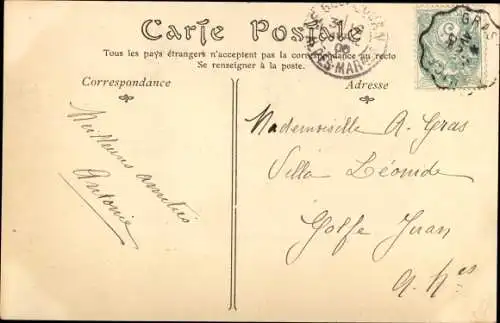 Carte Postale
Tous les pays étrangers n'acceptent pas la correspondance au recto
Se renseigner à la poste.
Correspondance
Adresse
Meilleures amitiés
Antonie
Mademoiselle A. Gras
Villa Léonide
Golfe Juan
A. Mes